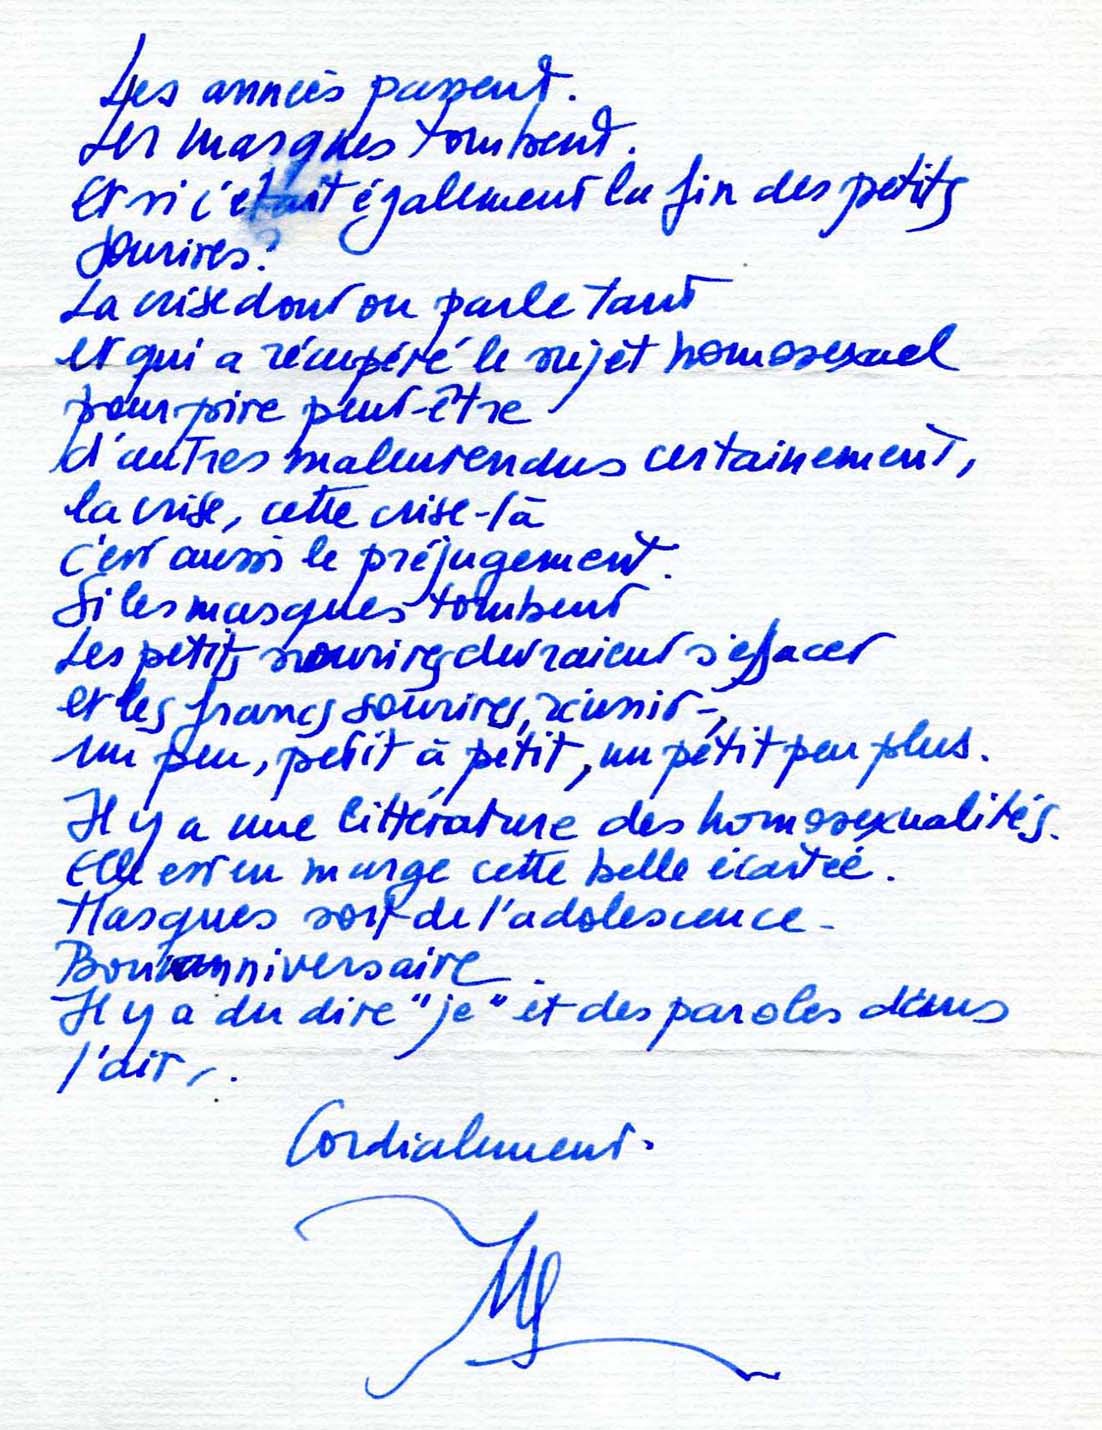 Les années passent.
Les masques tombent.
Et si c'était également la fin des petits
sourires?
La crise dont on parle tant
et qui a récupéré le sujet homosexuel
pour pire peut-être
d'autres malentendus certainement,
la crise, cette crise-là
c'est aussi le préjugement.
Si les masques tombent
Les petits sourires devraient s'effacer
et les francs sourires, réunir,
un peu, petit à petit, un petit peu plus.
Il y a une littérature des homosexualités.
Elle est en marge cette belle écartée.
Masques sort de l'adolescence.
Bon anniversaire.
Il y a du dire "je" et des paroles dans
l'air,.
Cordialement.